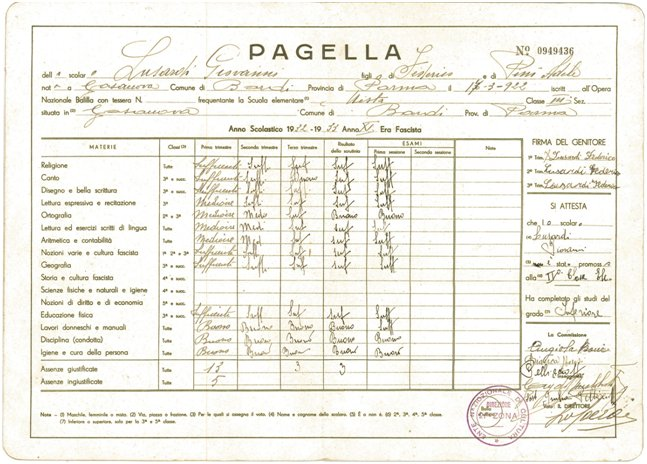 PAGELLA
No 0949436
dell' scolar Lusardi Giovanni figli di Federico e di Pini
nat a Casanova Comune di Bardi Provincia di Parma il 16-3-922 iscritt all'Opera
Nazionale Balilla con tessera N. frequentante la Scuola elementare Mista Classe III Sez.
situata in Casanova Comune di Bardi Prov. di Parma
Anno Scolastico 1932-1933 Anno XI Era Fascista
MATERIE Classi Primo trimestre Secondo trimestre Terzo trimestre Risultato dello scrutinio ESAMI Prima sessione Seconda sessione Note
Religione Tutte Sufficiente Suff Suf Suf Suff
Canto 3ª e succ. Sufficiente Suff Buono Suf Suff
Disegno e bella scrittura 3ª e succ. Sufficiente Suff Suf Suf Suff
Lettura espressiva e recitazione 3ª e succ. Mediocre Suff Suf Suf Suff
Ortografia 2ª e 3ª Mediocre Med Suf Buono Buono
Lettura ed esercizi scritti di lingua Tutte Mediocre Med Suf Suf Suf
Aritmetica e contabilità Tutte Mediocre Med Suf Suf Suff
Nozioni varie e cultura fascista 1ª e succ. Sufficiente Suff Suf Suf Suff
Geografia 3ª e succ. Sufficiente Suff Suf Suf Suff
Storia e cultura fascista 4ª e succ.
Scienze fisiche e naturali e igiene 4ª e succ.
Nozioni di diritto e di economia 5ª e succ.
Educazione fisica 3ª e succ. Sufficiente Suff Suf Suf Suff
Lavori donneschi e manuali Tutte Buono Buono Buono Buono Suff
Disciplina (condotta) Tutte Buono Buono Buono Buono Buono
Igiene e cura della persona Tutte Buono Buon Buon Buono Buono
Assenze giustificate Tutte 13 3 3
Assenze ingiustificate Tutte 5
FIRMA DEL GENITORE
1º Trim. Lusardi Federico
2º Trim. Lusardi Federico
3º Trim. Lusardi Federico
SI ATTESTA
che l o scolar
Lusardi
Giovanni
è stat promoss
alla IVª Classe
Ha completato gli studi del
grado Inferiore
La Commissione
IL DIRETTORE
ENTE NAZIONALE DI CULTURA
DIREZIONE
ZONA
Note - (1) Maschile, femminile o mista. (2) Via, piazza o frazione. (3) Per le quali si assegna il voto. (4) Nome e cognome dello scolaro. (5) È o non è. (6) 2ª, 3ª, 4ª, 5ª classe.
(7) Inferiore o superiore, solo per la 3ª e 5ª classe.